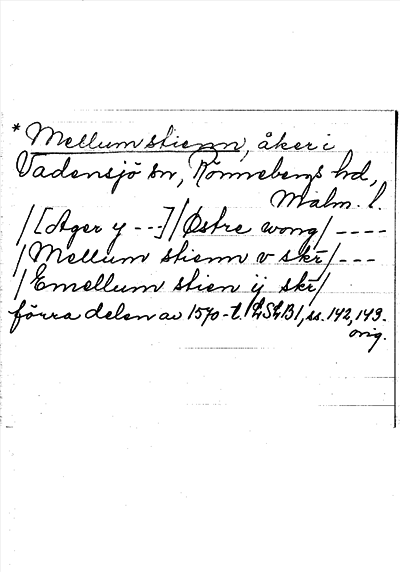 * Mellum stienn, åker i
Vadensjö sn, Rönnebergs hd,
Malm. l.
/[Ager y ---]/Østre wong/----
/Mellum stienn v skr̄/---
/Emellum stien ij skr̄/
förra delen av 1570-t. LSLB1, ss. 142, 143.
orig.